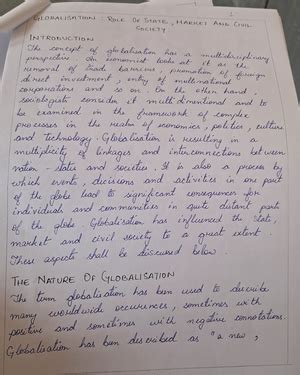 1
GLOBALISATION ROLE OF STATE, MARKET AND CIVIL
SOCIETY
INTRODUCTION
The concept of globalisation has a multidisciplinary
perspective. An economist looks at it as the
removal of trade barriers, promotion of foreign
direct investment, entry of multinational
corporations and so on. On the other hand,
sociologists consider it multidimentional and to
be examined in the framework of complex
processes in the realm of economics, politics, culture
and technology. Globalisation is resulting in a
multiplicity of linkages and interconnections between
nation-states and societies. It is also a process by
which events, decisions and activities in one part
of the globe lead to significant consequences for
individuals and communities in quite distant parts
of the globe. Globalisation has influenced the state,
market and civil society to a great extent.
These aspects shall be discussed below.
THE NATURE OF GLOBALISATION
The term globalisation has been used to describe
many worldwide occurences, sometimes with
positive and sometimes with negative connotations.
Globalisation has been described as "a new,